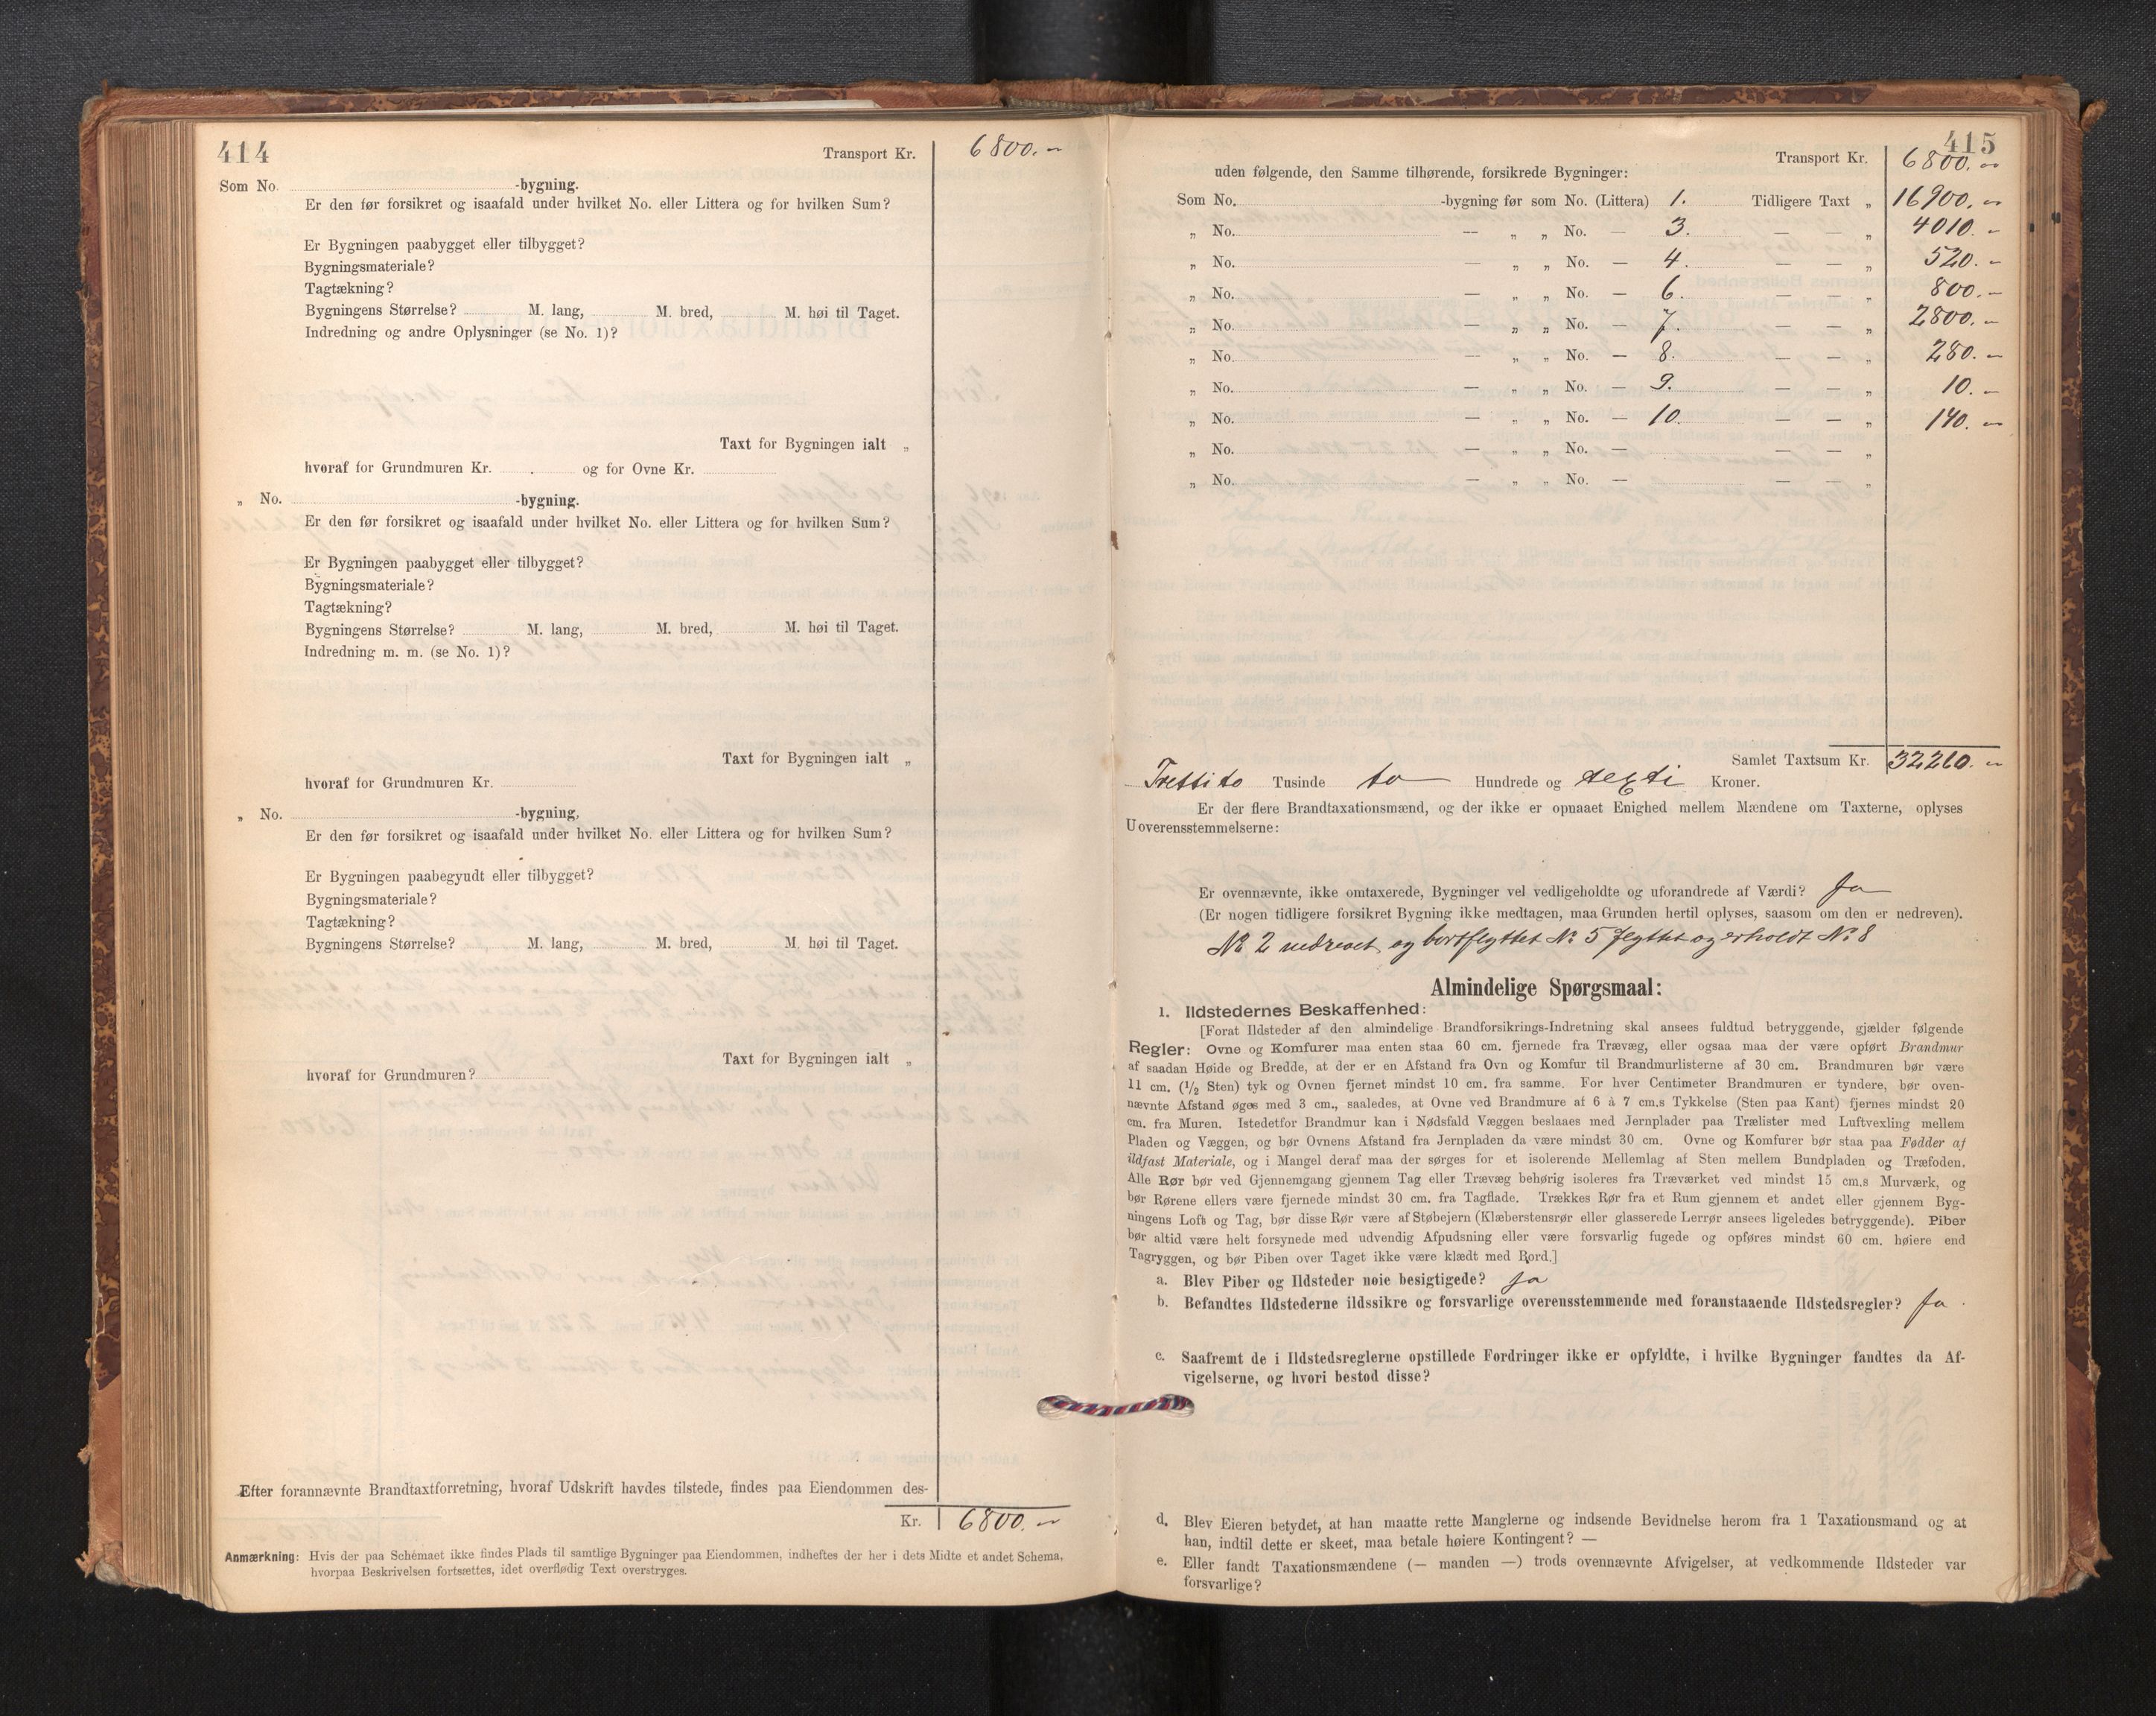 414
Transport Kr. 6800.-
Som No. -bygning.
Er den før forsikret og isaafald under hvilket No. eller Littera og for hvilken Sum?
Er Bygningen paabygget eller tilbygget?
Bygningsmateriale?
Tagtækning?
Bygningens Størrelse? M. lang, M. bred, M. høi til Taget.
Indredning og andre Oplysninger (se No. 1)?
Taxt for Bygningen ialt „
hvoraf for Grundmuren Kr. og for Ovne Kr.
„ No. -bygning.
Er den før forsikret og isaafald under hvilket No. eller Littera og for hvilken Sum?
Er Bygningen paabygget eller tilbygget?
Bygningsmateriale?
Tagtækning?
Bygningens Størrelse? M. lang, M. bred, M. høi til Taget.
Indredning m. m. (se No. 1)?
Taxt for Bygningen ialt „
hvoraf for Grundmuren Kr.
„ No. -bygning,
Er den før forsikret og isaafald under hvilket No. eller Littera og for hvilken Sum?
Er Bygningen paabegyudt eller tilbygget?
Bygningsmateriale?
Tagtækning?
Bygningens Størrelse? M. lang, M. bred, M. høi til Taget.
Taxt for Bygningen ialt „
hvoraf for Grundmuren?
Efter forannævnte Brandtaxtforretning, hvoraf Udskrift havdes tilstede, findes paa Eiendommen des-
Kr. 6800.-
Anmærkning: Hvis der paa Schemaet ikke findes Plads til samtlige Bygninger paa Eiendommen, indheftes der her i dets Midte et andet Schema,
hvorpaa Beskrivelsen fortsættes, idet overflødig Text overstryges.
415
Transport Kr. 6800.-
uden følgende, den Samme tilhørende, forsikrede Bygninger:
Som No. -bygning før som No. (Littera) 1. Tidligere Taxt „ 16900.-
„ No. — „ „ No. — 3. — — „ 4010.-
„ No. — „ „ No. — 4. — — „ 520.-
„ No. — „ „ No. — 6. — — „ 800.-
„ No. — „ „ No. — 7. — — „ 2800.-
„ No. — „ „ No. — 8. — — „ 280.-
„ No. — „ „ No. — 9. — — „ 10.-
„ No. — „ „ No. — 10. — — „ 140.-
„ No. — „ „ No. — — — „
„ No. — „ „ No. — — — „
Samlet Taxtsum Kr. 32260.-
Trettito Tusinde to Hundrede og sexti Kroner.
Er der flere Brandtaxationsmænd, og der ikke er opnaaet Enighed mellem Mændene om Taxterne, oplyses
Uoverensstemmelserne:
Er ovennævnte, ikke omtaxerede, Bygninger vel vedligeholdte og uforandrede af Værdi? Ja
(Er nogen tidligere forsikret Bygning ikke medtagen, maa Grunden hertil oplyses, saasom om den er nedreven).
No 2 nedrevet og bortflyttet No 5 flyttet og erholdt No 8
Almindelige Spørgsmaal:
1. Ildstedernes Beskaffenhed:
[Forat Ildsteder af den almindelige Brandforsikrings-Indretning skal ansees fuldtud betryggende, gjælder følgende
Regler: Ovne og Komfurer maa enten staa 60 cm. fjernede fra Trævæg, eller ogsaa maa der være opført Brandmur
af saadan Høide og Bredde, at der er en Afstand fra Ovn og Komfur til Brandmurlisterne af 30 cm. Brandmuren bør være
11 cm. (1/2 Sten) tyk og Ovnen fjernet mindst 10 cm. fra samme. For hver Centimeter Brandmuren er tyndere, bør oven-
nævnte Afstand øges med 3 cm., saaledes, at Ovne ved Brandmure af 6 à 7 cm.s Tykkelse (Sten paa Kant) fjernes mindst 20
cm. fra Muren. Istedetfor Brandmur kan i Nødsfald Væggen beslaaes med Jernplader paa Trælister med Luftvexling mellem
Pladen og Væggen, og bør Ovnens Afstand fra Jernpladen da være mindst 30 cm. Ovne og Komfurer bør staa paa Fødder af
ildfast Materiale, og i Mangel deraf maa der sørges for et isolerende Mellemlag af Sten mellem Bundpladen og Træfoden.
Alle Rør bør ved Gjennemgang gjennem Tag eller Trævæg behørig isoleres fra Træværket ved mindst 15 cm.s Murværk, og
bør Rørene ellers være fjernede mindst 30 cm. fra Tagflade. Trækkes Rør fra et Rum gjennem et andet eller gjennem Byg-
ningens Loft og Tag, bør disse Rør være af Støbejern (Klæberstensrør eller glasserede Lerrør ansees ligeledes betryggende). Piber
bør altid være helt forsynede med udvendig Afpudsning eller være forsvarlig fugede og opføres mindst 60 cm. høiere end
Tagryggen, og bør Piben over Taget ikke være klædt med Bord.]
a. Blev Piber og Ildsteder nøie besigtigede? Ja
b. Befandtes Ildstederne ildssikre og forsvarlige overensstemmende med foranstaaende Ildstedsregler? Ja.
c. Saafremt de i Ildstedsreglerne opstillede Fordringer ikke er opfyldte, i hvilke Bygninger fandtes da Af-
vigelserne, og hvori bestod disse?
d. Blev Eieren betydet, at han maatte rette Manglerne og indsende Bevidnelse herom fra 1 Taxationsmand og at
han, indtil dette er skeet, maa betale høiere Kontingent? —
e. Eller fandt Taxationsmændene (— manden —) trods ovennævnte Afvigelser, at vedkommende Ildsteder var
forsvarlige?